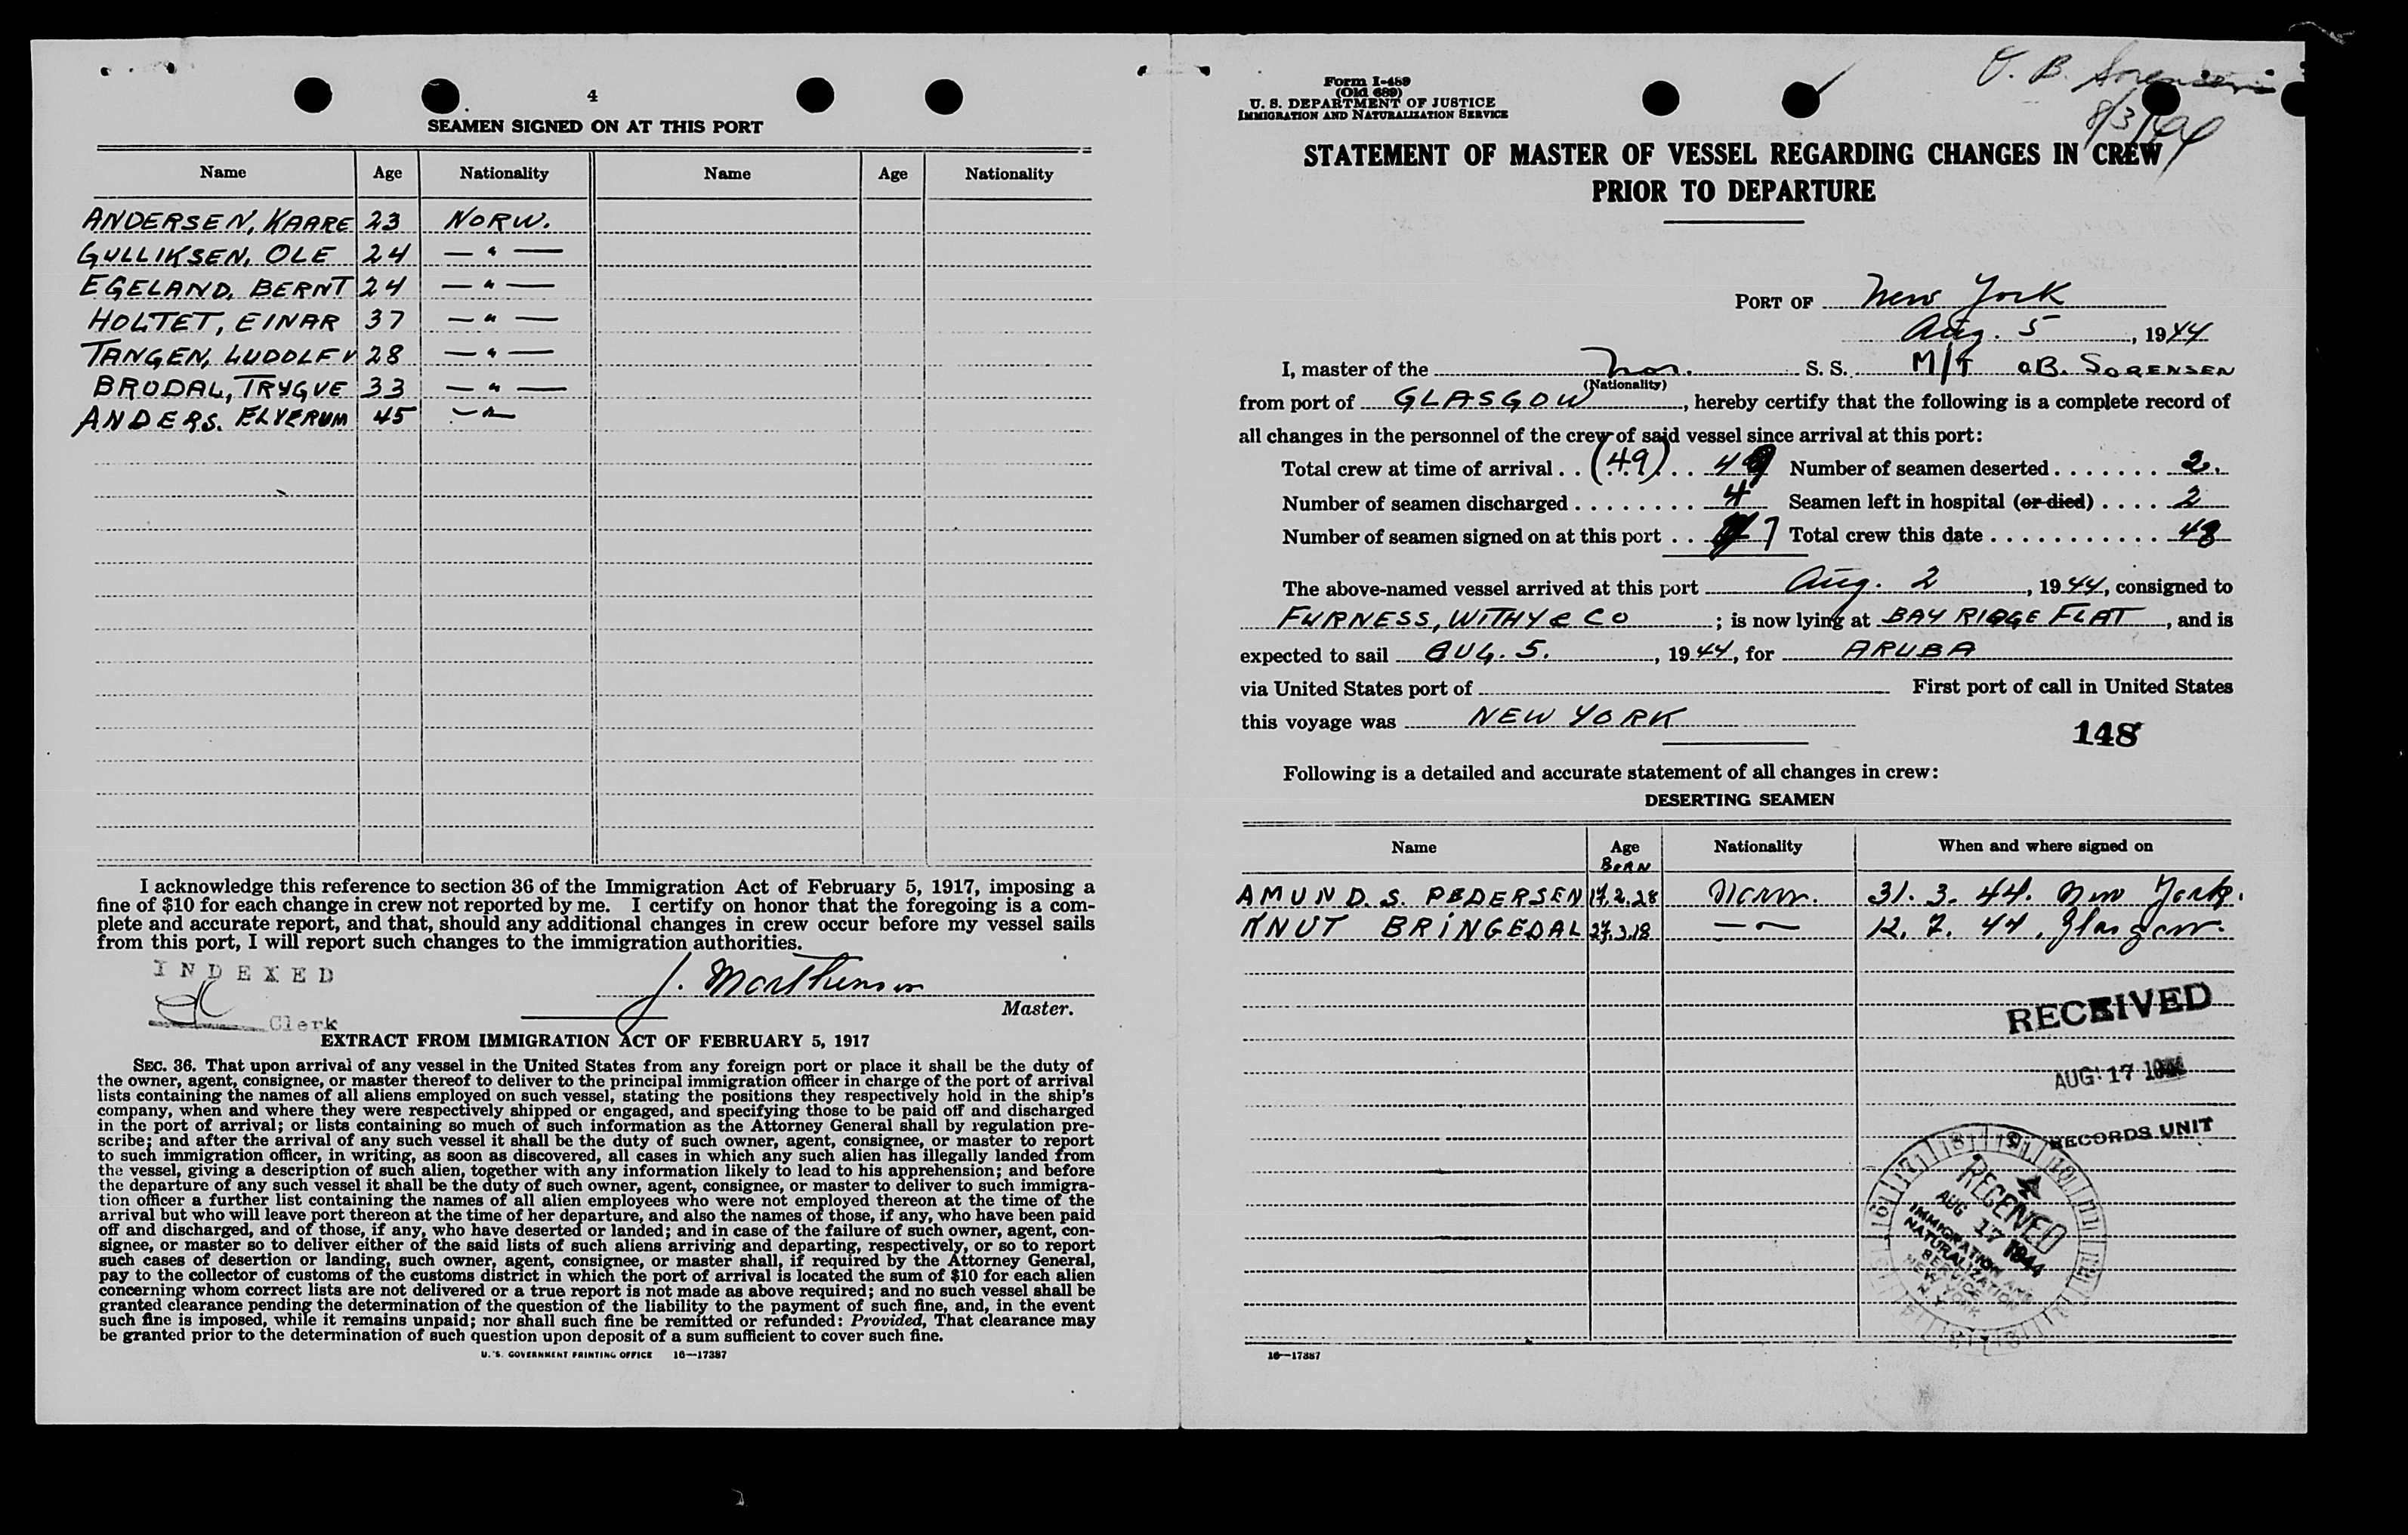 4
SEAMEN SIGNED ON AT THIS PORT
Name Age Nationality Name Age Nationality
ANDERSEN, KAARE 23 NORW.
GULLIKSEN, OLE 24 — " —
EGELAND, BERNT 24 — " —
HOLTET, EINAR 37 — " —
TANGEN, LUDOLF V 28 — " —
BRODAL, TRYGVE 33 — " —
ANDERS. ELVERUM 45 — " —
I acknowledge this reference to section 36 of the Immigration Act of February 5, 1917, imposing a
fine of $10 for each change in crew not reported by me. I certify on honor that the foregoing is a com-
plete and accurate report, and that, should any additional changes in crew occur before my vessel sails
from this port, I will report such changes to the immigration authorities.
INDEXED
Clerk
J. Marthinsen
Master.
EXTRACT FROM IMMIGRATION ACT OF FEBRUARY 5, 1917
SEC. 36. That upon arrival of any vessel in the United States from any foreign port or place it shall be the duty of
the owner, agent, consignee, or master thereof to deliver to the principal immigration officer in charge of the port of arrival
lists containing the names of all aliens employed on such vessel, stating the positions they respectively hold in the ship's
company, when and where they were respectively shipped or engaged, and specifying those to be paid off and discharged
in the port of arrival; or lists containing so much of such information as the Attorney General shall by regulation pre-
scribe; and after the arrival of any such vessel it shall be the duty of such owner, agent, consignee, or master to report
to such immigration officer, in writing, as soon as discovered, all cases in which any such alien has illegally landed from
the vessel, giving a description of such alien, together with any information likely to lead to his apprehension; and before
the departure of any such vessel it shall be the duty of such owner, agent, consignee, or master to deliver to such immigra-
tion officer a further list containing the names of all alien employees who were not employed thereon at the time of the
arrival but who will leave port thereon at the time of her departure, and also the names of those, if any, who have been paid
off and discharged, and of those, if any, who have deserted or landed; and in case of the failure of such owner, agent, con-
signee, or master so to deliver either of the said lists of such aliens arriving and departing, respectively, or so to report
such cases of desertion or landing, such owner, agent, consignee, or master shall, if required by the Attorney General,
pay to the collector of customs of the customs district in which the port of arrival is located the sum of $10 for each alien
concerning whom correct lists are not delivered or a true report is not made as above required; and no such vessel shall be
granted clearance pending the determination of the question of the liability to the payment of such fine, and, in the event
such fine is imposed, while it remains unpaid; nor shall such fine be remitted or refunded: Provided, That clearance may
be granted prior to the determination of such question upon deposit of a sum sufficient to cover such fine.
U. S. GOVERNMENT PRINTING OFFICE 16—17387
O. B. Sorensen
8/3/44
Form I-489
(Old 689)
U. S. DEPARTMENT OF JUSTICE
IMMIGRATION AND NATURALIZATION SERVICE
STATEMENT OF MASTER OF VESSEL REGARDING CHANGES IN CREW
PRIOR TO DEPARTURE
PORT OF New York
Aug. 5, 1944
I, master of the Nor. S. S. M/T O.B. SORENSEN
(Nationality)
from port of GLASGOW, hereby certify that the following is a complete record of
all changes in the personnel of the crew of said vessel since arrival at this port:
Total crew at time of arrival . . (49) . . 49 Number of seamen deserted . . . . . . . 2.
Number of seamen discharged . . . . . . . . 4 Seamen left in hospital (or died) . . . . 2
Number of seamen signed on at this port . . 7 Total crew this date . . . . . . . . . . . . 48
The above-named vessel arrived at this port Aug. 2, 1944, consigned to
FURNESS, WITHY & CO; is now lying at BAY RIDGE FLAT, and is
expected to sail AUG. 5., 1944, for ARUBA
via United States port of First port of call in United States
this voyage was NEW YORK
148
Following is a detailed and accurate statement of all changes in crew:
DESERTING SEAMEN
Name Age Nationality When and where signed on
BORN
AMUND. S. PEDERSEN 17.2.28 Norw. 31. 3. 44. New York.
KNUT BRINGEDAL 27.3.18 — " — 12. 7. 44. Glasgow.
RECEIVED
AUG 17 1944
RECORDS UNIT
RECEIVED
AUG 17 1944
IMMIGRATION AND
NATURALIZATION
SERVICE
NEW YORK
N. Y.
16—17387